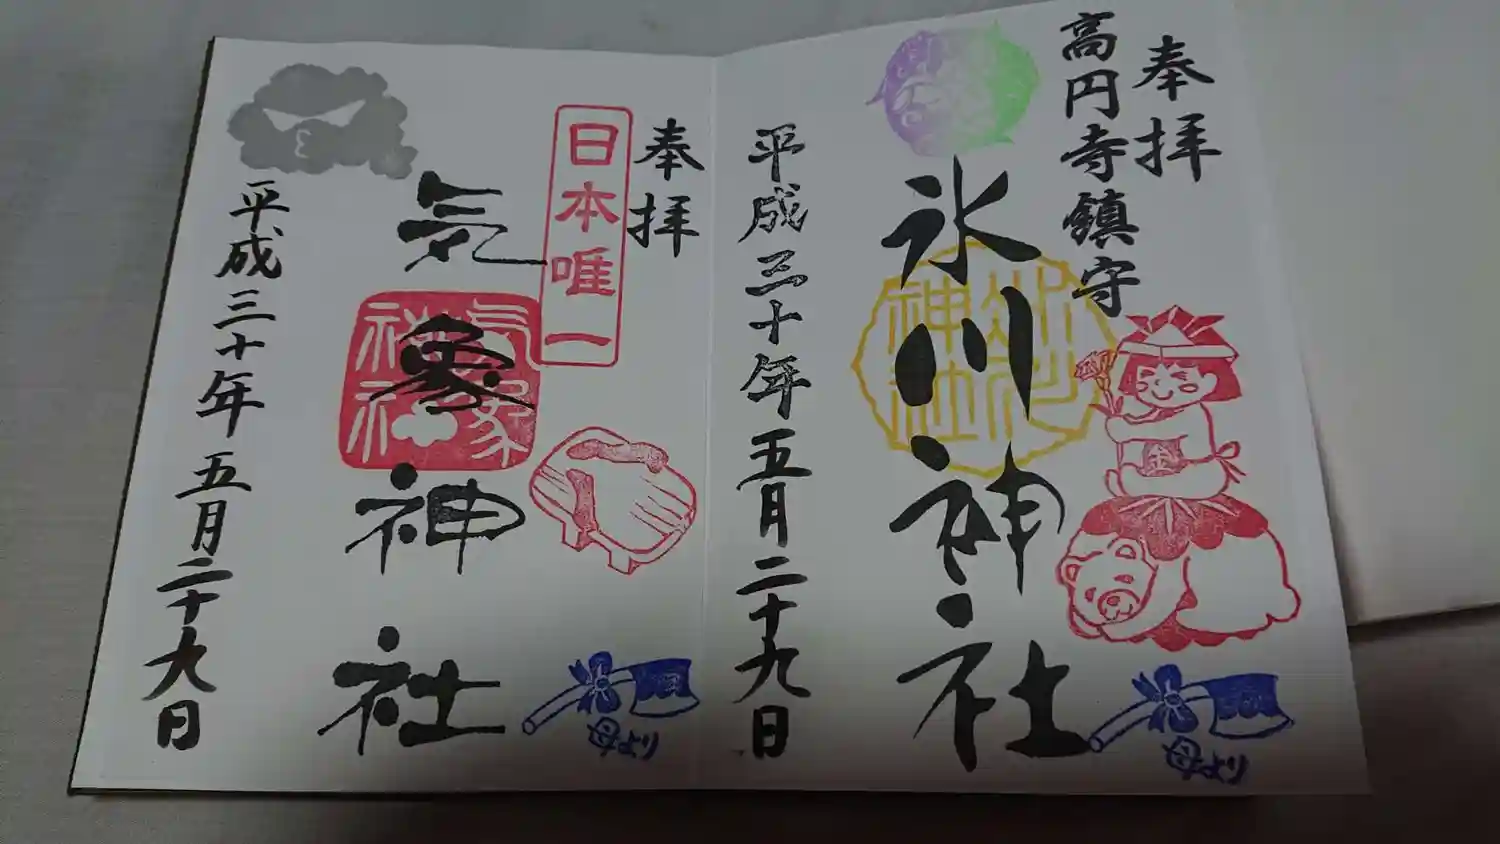 奉拝
高円寺鎮守
氷川神社
氷川神社
金
母より
平成三十年五月二十九日
奉拝
日本唯一
気象神社
気象神社
母より
平成三十年五月二十九日